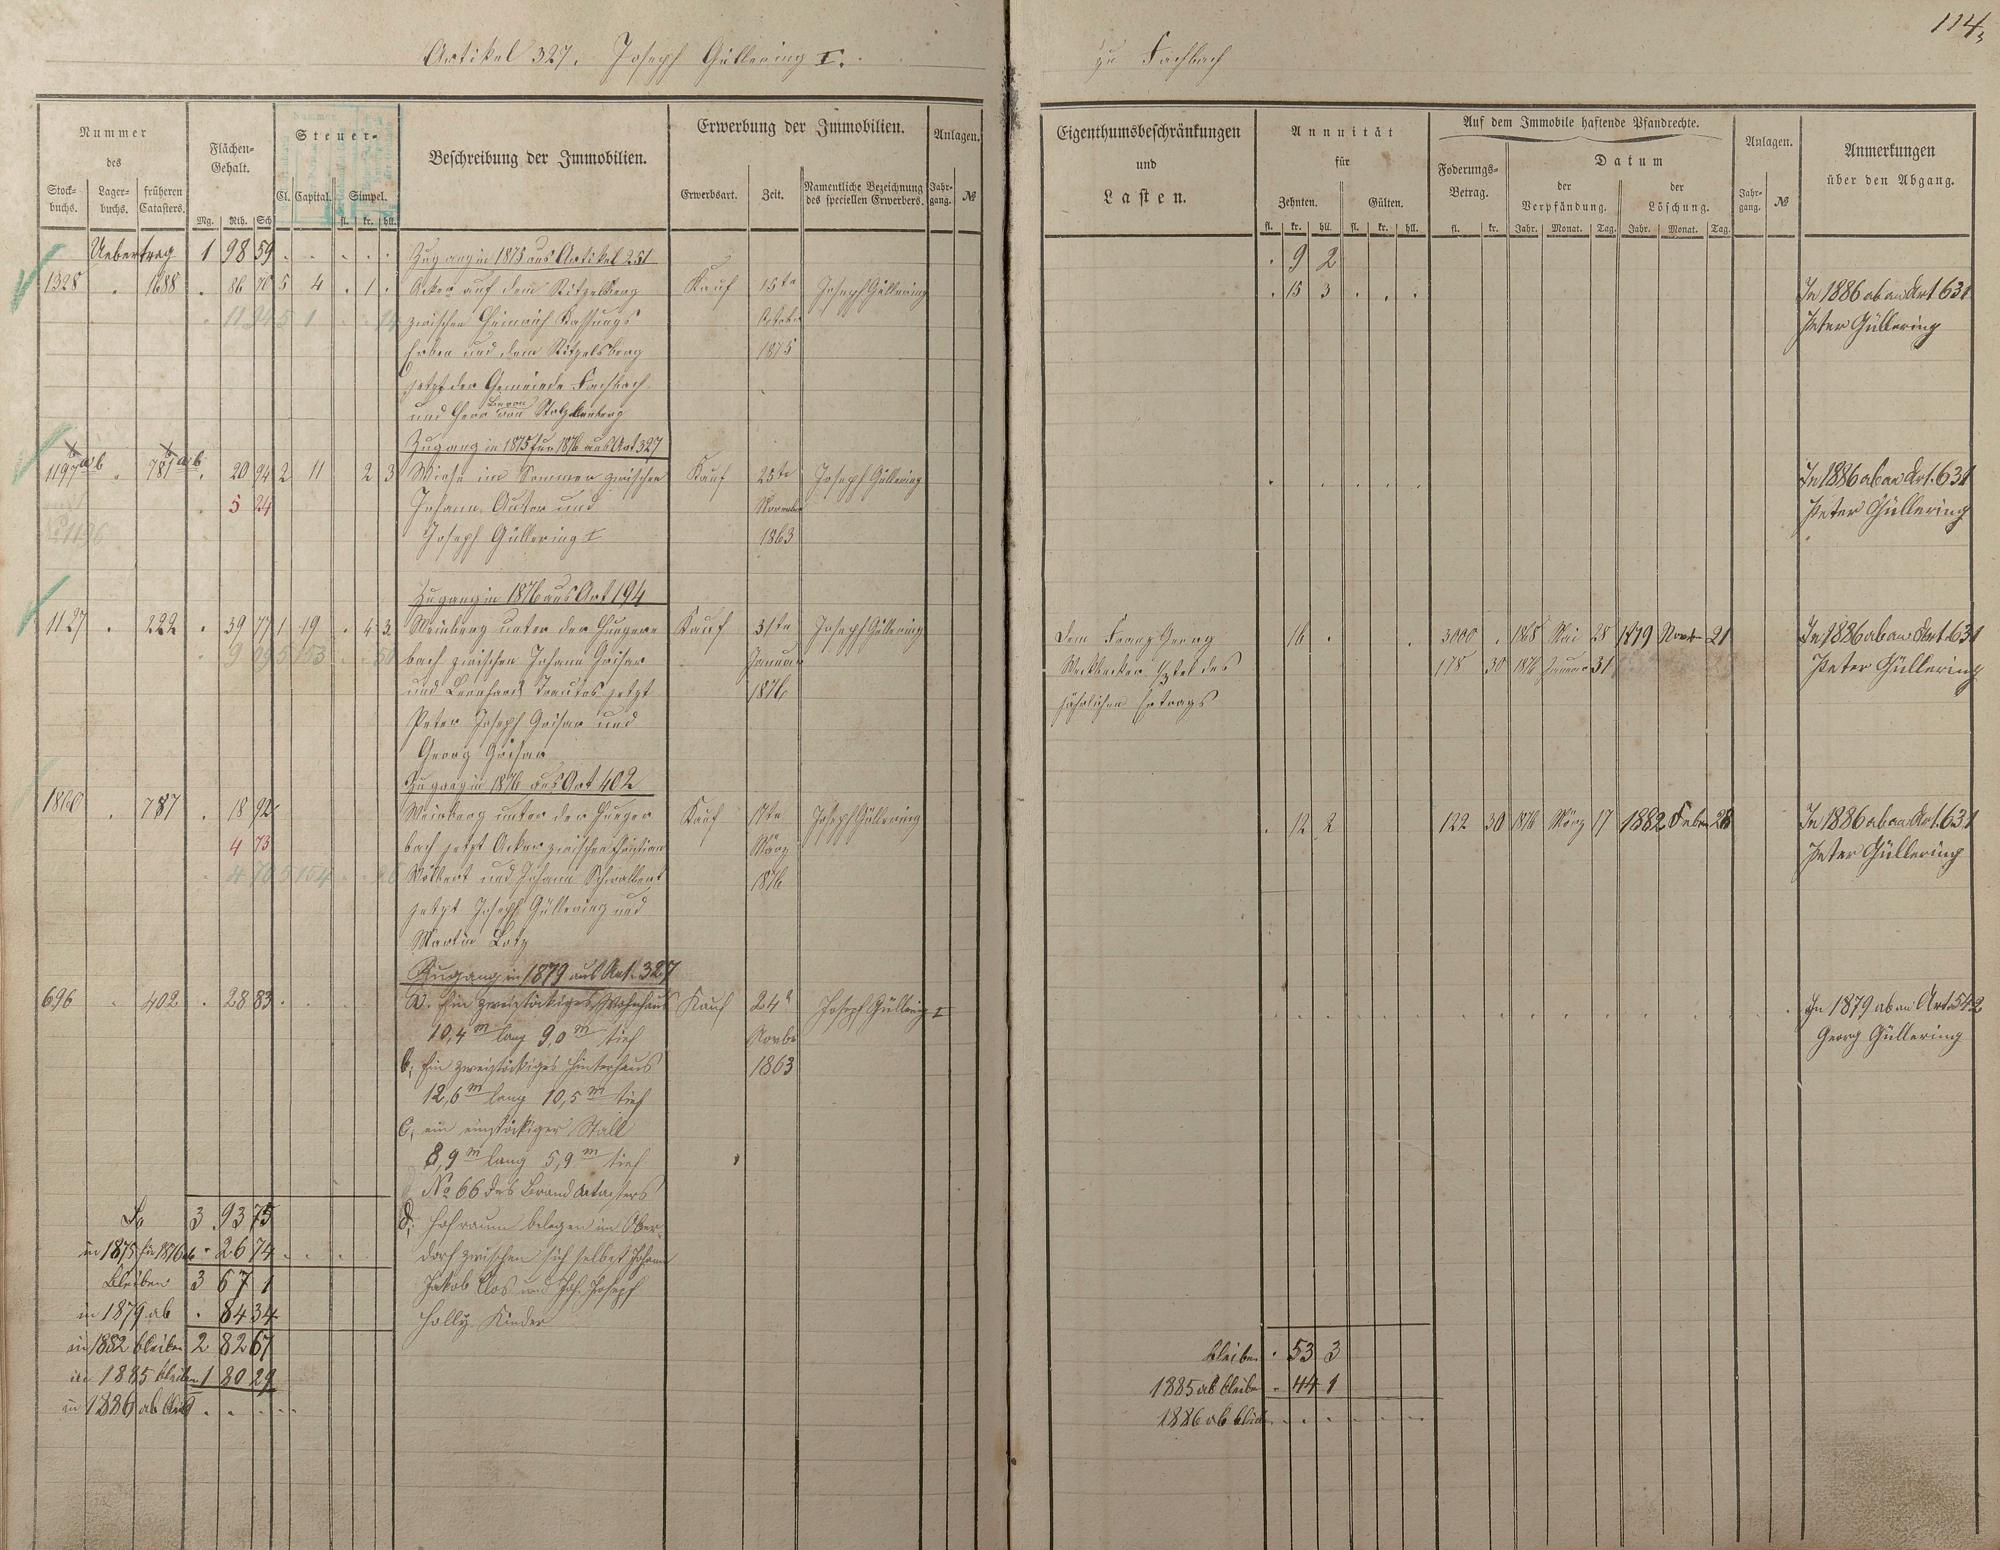 114,
Artikel 327. Joseph Güllering I. zu Fachbach
Nummer
des
Stock-buchs. Lager-buchs. früheren Catasters.
Flächen-Gehalt.
Mg. Rth. Sch
Steuer-
Cl. Capital. Simpel.
fl. kr. hll.
Beschreibung der Immobilien.
Erwerbung der Immobilien.
Erwerbsart. Zeit. Namentliche Bezeichnung des speciellen Erwerbers.
Anlagen.
Jahr-gang. №
Eigenthumsbeschränkungen
und
Lasten.
Annuität
für
Zehnten. Gülten.
fl. kr. hll. fl. kr. hll.
Auf dem Immobile haftende Pfandrechte.
Foderungs-Betrag.
fl. kr.
Datum
der Verpfändung. der Löschung.
Jahr. Monat. Tag. Jahr. Monat. Tag.
Anlagen.
Jahr-gang. №
Anmerkungen
über den Abgang.
Uebertrag 1 98 59 Zugang in 1875 aus Artikel 251 9 2
1328 1688 86 70 5 4 1 Acker auf dem Ritzelberg Kauf 15te Joseph Güllering 15 3 In 1886 ab an Art. 631
zwischen Heinrich October Peter Güllering
Erben und dem Ritzelsberg 1875
jetzt der Gemeinde Fachbach
und Herr Baron von Stolzenberg
Zugang in 1875 für 1876 aus Art 327
1197 a/b 781 a/b 20 94 2 11 2 3 Wiese im Sommer zwischen Kauf 25te Joseph Güllering In 1886 ab an Art. 631
5 24 Johann und November Peter Güllering
Joseph Güllering I 1863
Zugang in 1876 aus Art 194
1127 222 39 77 1 19 4 3 Weinberg unter der Kauf 31te Joseph Güllering Dem Franz Georg 16 3000 1868 Mai 28 1879 Novb 21 In 1886 ab an Art. 631
bach zwischen Johann Januar des 178 30 1876 Januar 31 Peter Güllering
und Bernhard jetzt 1876 jährlichen Ertrags
Peter Joseph und
Georg
Zugang in 1876 aus Art 402
1860 787 18 92 Weinberg unter der Kauf 17te Joseph Güllering 12 2 122 30 1876 März 17 1882 Febr 28 In 1886 ab an Art. 631
4 73 bach jetzt Acker zwischen Christian März Peter Güllering
und Johann 1876
jetzt Joseph Güllering und
Martin Lotz
Zugang in 1879 aus Art. 327
696 402 28 83 a. Ein zweistöckiges Wohnhaus Kauf 24 Joseph Güllering I In 1879 ab an Art 542
10,4 m lang 9,0 m tief Novbr Georg Güllering
b, Ein zweistöckiges Hinterhaus 1863
12,6 m lang 10,5 m tief
c, ein einstöckiger Stall
8,9 m lang 5,9 m tief
No 66 des Brandcatasters
d, Hofraum belegen im Ober-
dorf zwischen sich selbst Johann
Jakob Clos und Joh. Joseph
Holly Kinder
Sa 3 93 75
in 1875 für 1876 ab 26 74
Bleiben 3 67 1
in 1879 ab 84 34
in 1882 bleiben 2 82 67
in 1885 bleiben 1 80 29
in 1886 ab bleibt
bleiben 53 3
1885 ab bleiben 44 1
1886 ab bleiben